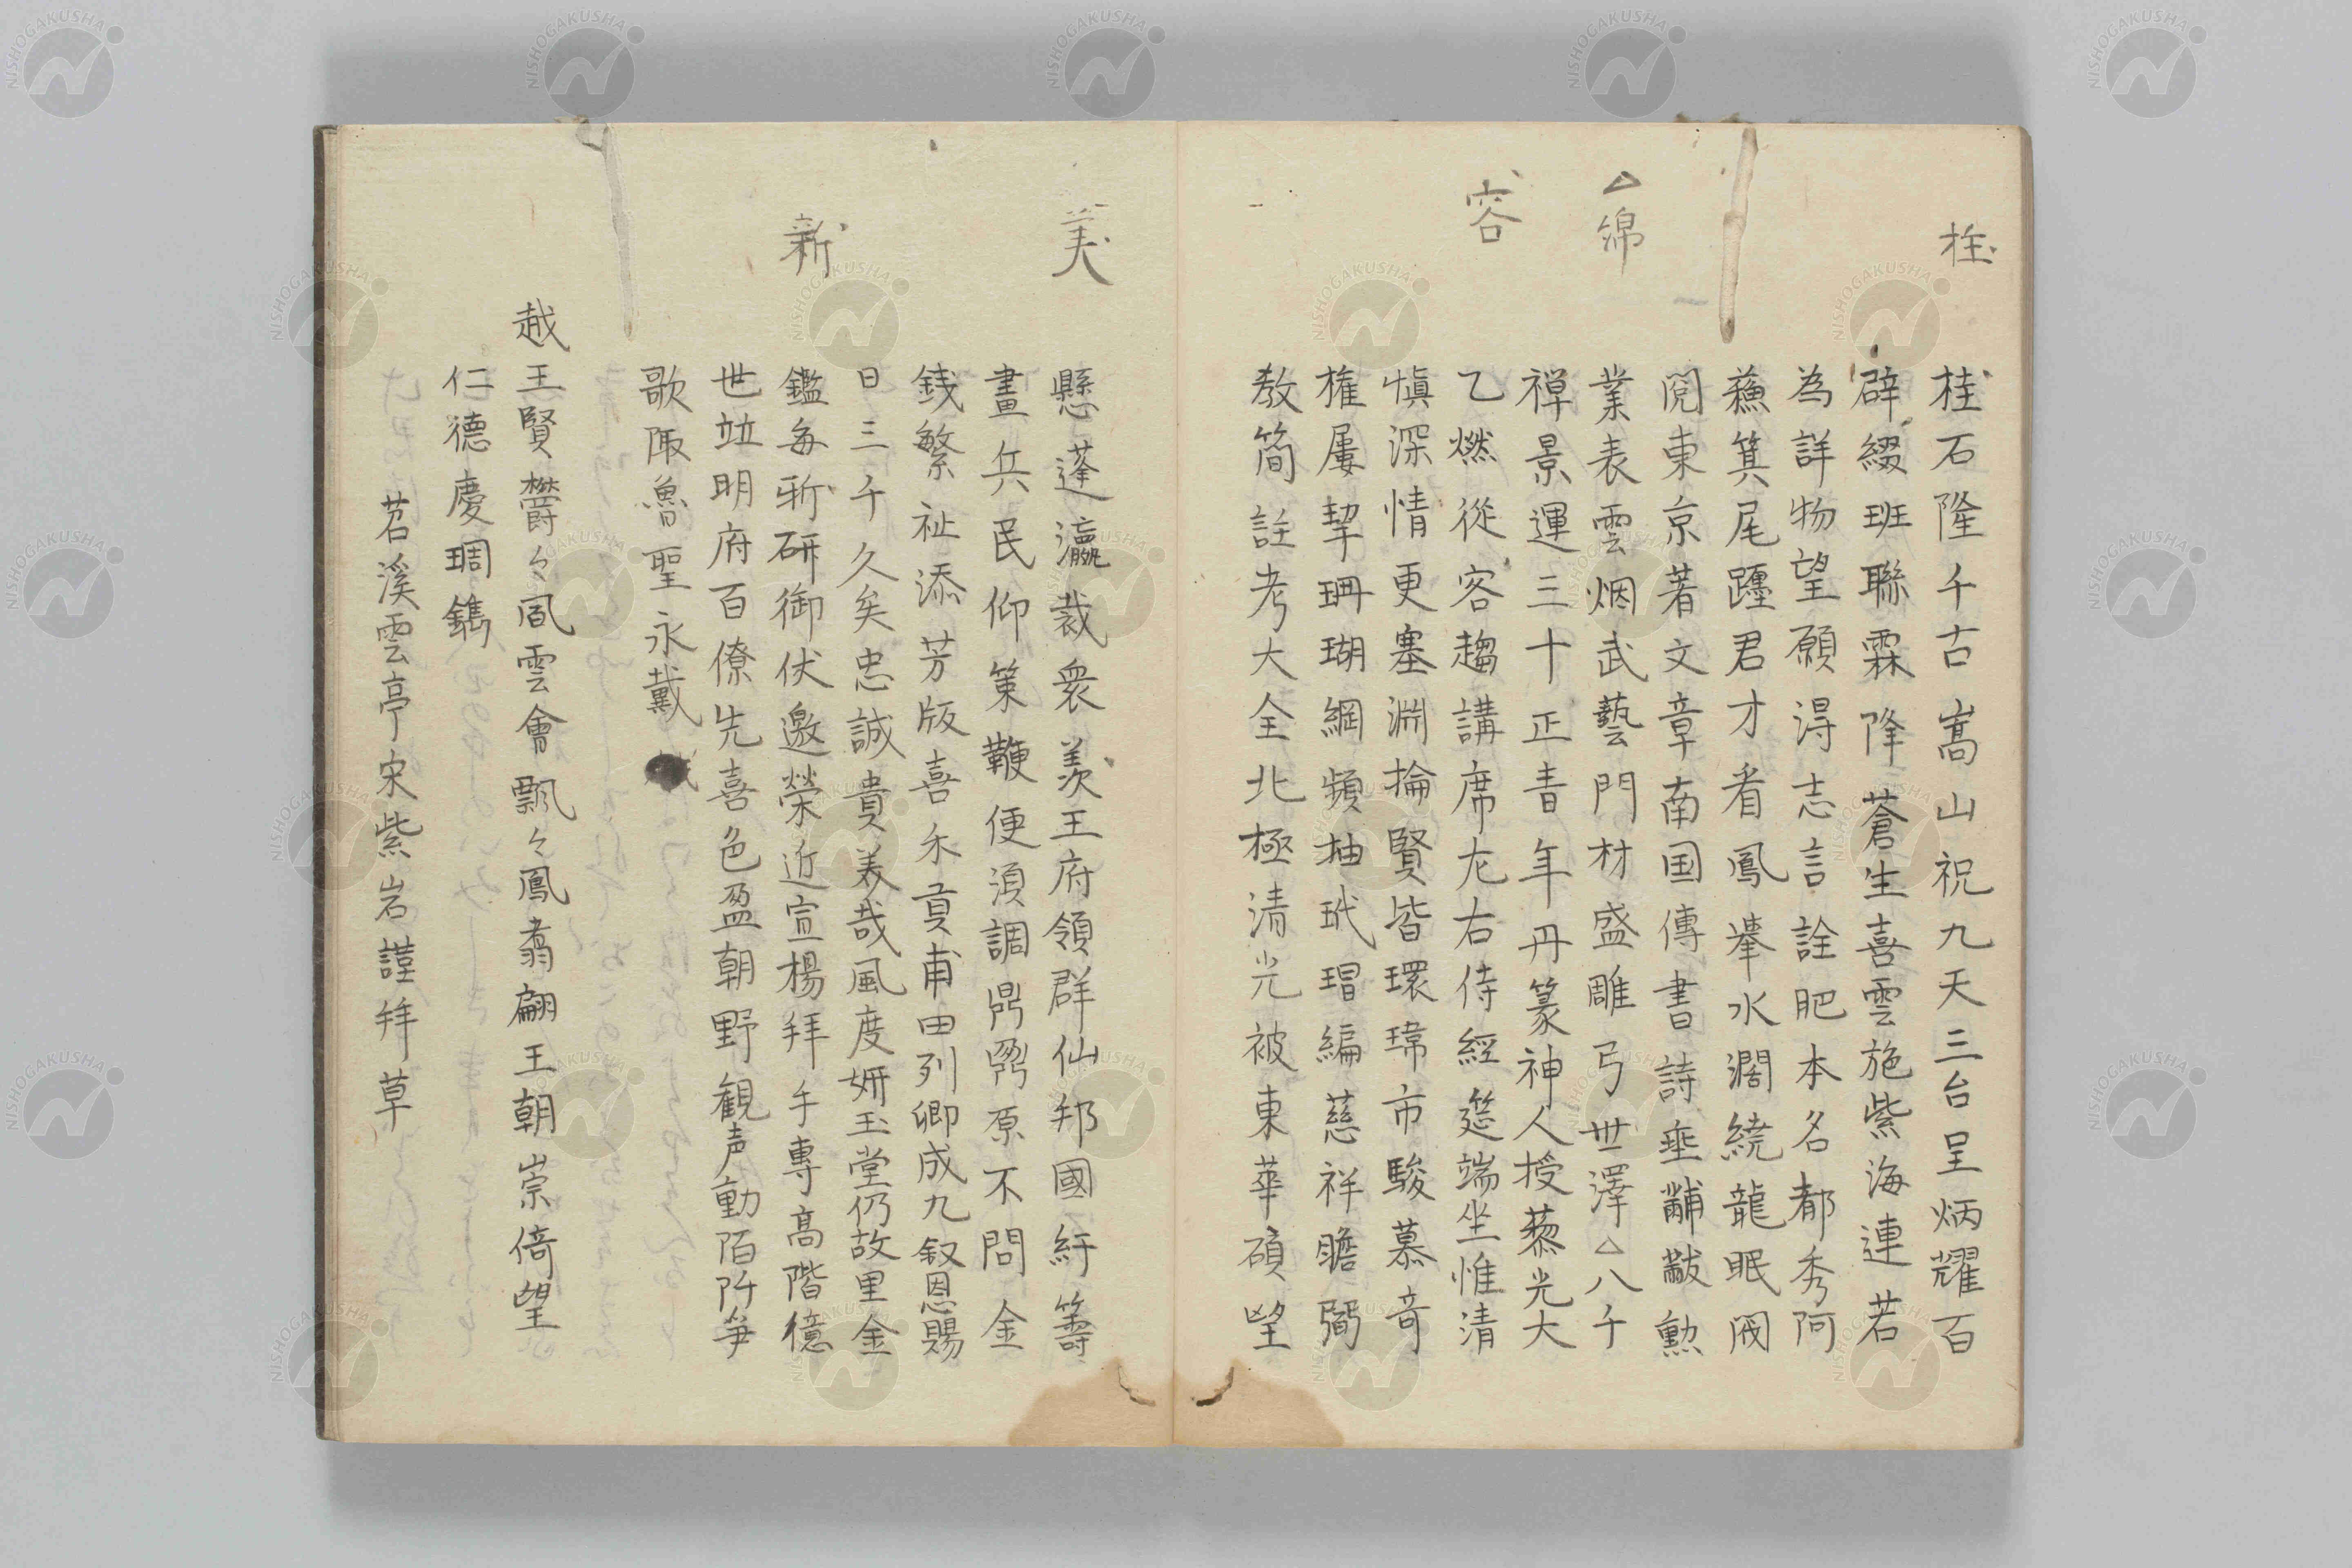 柱
△綿
容
桂石隆千古嵩山祝九天三台呈炳耀百
辟綴班聯霖降蒼生喜雲施紫海連若
為詳物望願得志言詮肥本名都秀阿
蘓箕尾躔君才看鳳擧水濶繞龍眠
閲東京著文章南国傳書詩垂黼黻勲
業表雲烟武藝門材盛雕弓世澤△八千
禪景運三十正青年丹篆神人授藜光大
乙燃從容趨講席左右侍經筵端坐惟清
慎深情更塞淵掄賢皆環瑋市駿慕奇
権屢挈珊瑚綱頻抽玳瑁編慈祥瞻
教簡註考大全北極清光被東華碩望
美
新
懸蓬瀛裁衆羡王府領群仙邦國紆籌
畫兵民仰策鞭便須調鼎原不問金
銭繁祉添芳版喜禾貢甫田列卿成九叙恩賜
日三千久矣忠誠貴美哉風度妍玉堂仍故里金
鑑毎新研御伏邀榮近宣楊拜手專高階億
世竝明府百僚先喜色盈朝野観声動陌阡笋
歌陬魯聖永戴
越王賢欝々風雲會飄々鳳翥翩王朝崇倚望
仁德慶琱鐫
苕溪雲亭宋紫岩謹拝草
NISHOGAKUSHA